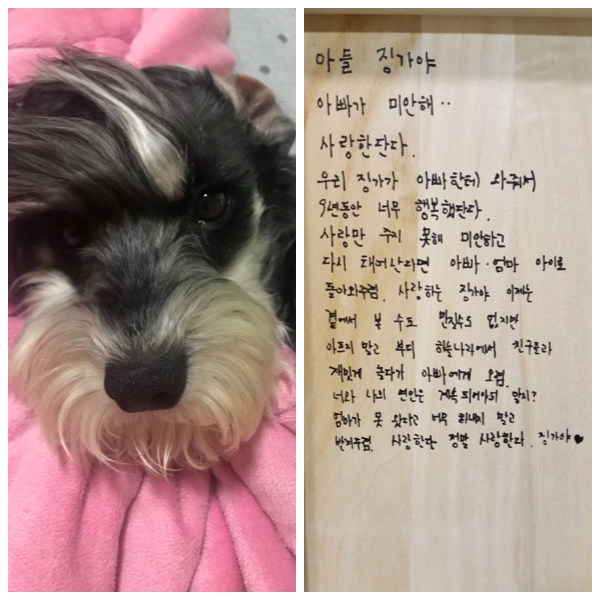 아들 징가야
아빠가 미안해..
사랑한단다.
우리 징가가 아빠한테 와줘서
9년동안 너무 행복했단다.
사랑만 주지 못해 미안하고
다시 태어난다면 아빠·엄마 아이로
돌아와주렴. 사랑하는 징가야 이제는
곁에서 볼 수도 만질수도 없지만
아프지 말고 부디 하늘나라에서 친구들과
재밌게 놀다가 아빠에게 오렴.
너와 나의 인연은 계속 되어야되 알지?
엄마가 못 왔다고 너무 화내지 말고
반겨주렴. 사랑한다 정말 사랑한다. 징가야♥